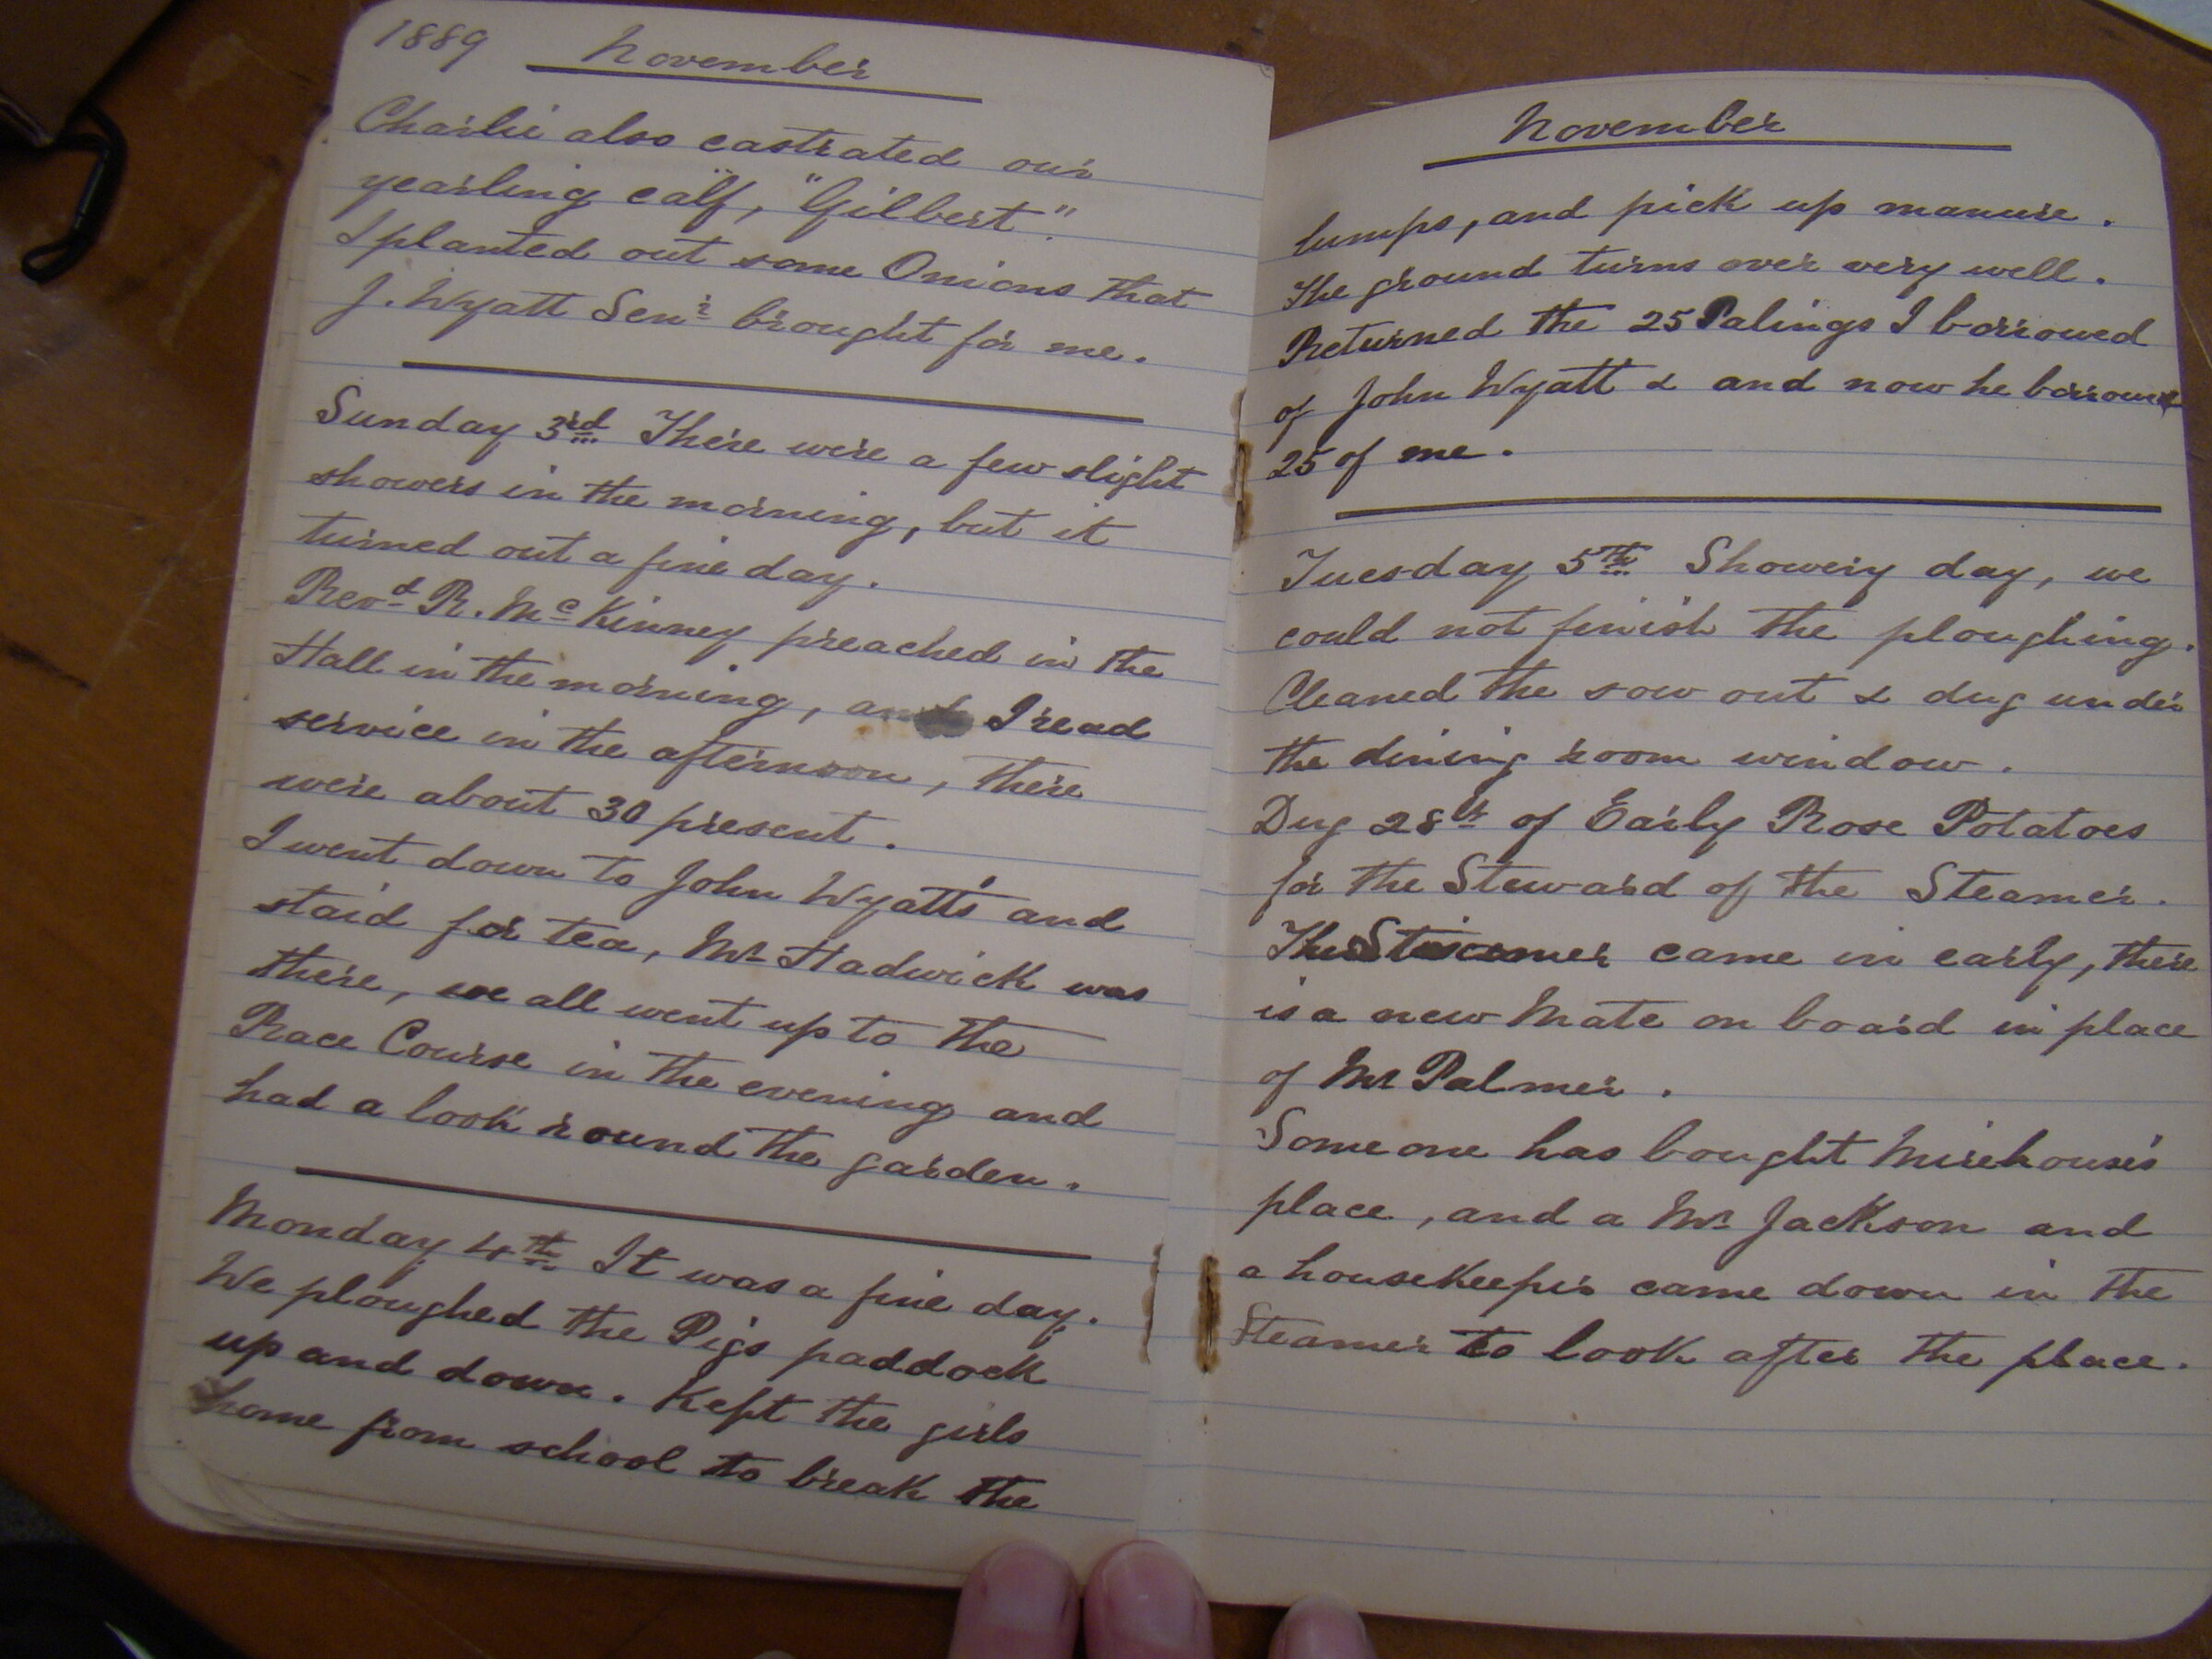 1889 November
Charlie also castrated our
yearling calf, "Gilbert".
I planted out some Onions that
J. Wyatt Senr brought for me.
Sunday 3rd There were a few slight
showers in the morning, but it
turned out a fine day.
Revd R. McKinney preached in the
Hall in the morning, and I read
service in the afternoon, there
were about 30 present.
I went down to John Wyatt's and
staid for tea, Mr Hadwick was
there, we all went up to the
Race Course in the evening and
had a look round the garden.
Monday 4th It was a fine day.
We ploughed the Pigs paddock
up and down. Kept the girls
home from school to break the
November
lumps, and pick up manure.
The ground turns over very well.
Returned the 25 Palings I borrowed
of John Wyatt & and now he borrows
25 of me.
Tuesday 5th Showery day, we
could not finish the ploughing.
Cleaned the sow out & dug under
the dining room window.
Dug 28 lb of Early Rose Potatoes
for the Steward of the Steamer.
The Steamer came in early, there
is a new Mate on board in place
of Mr Palmer.
Some one has bought Mirehouse's
place, and a Mr Jackson and
a housekeeper came down in the
Steamer to look after the place.